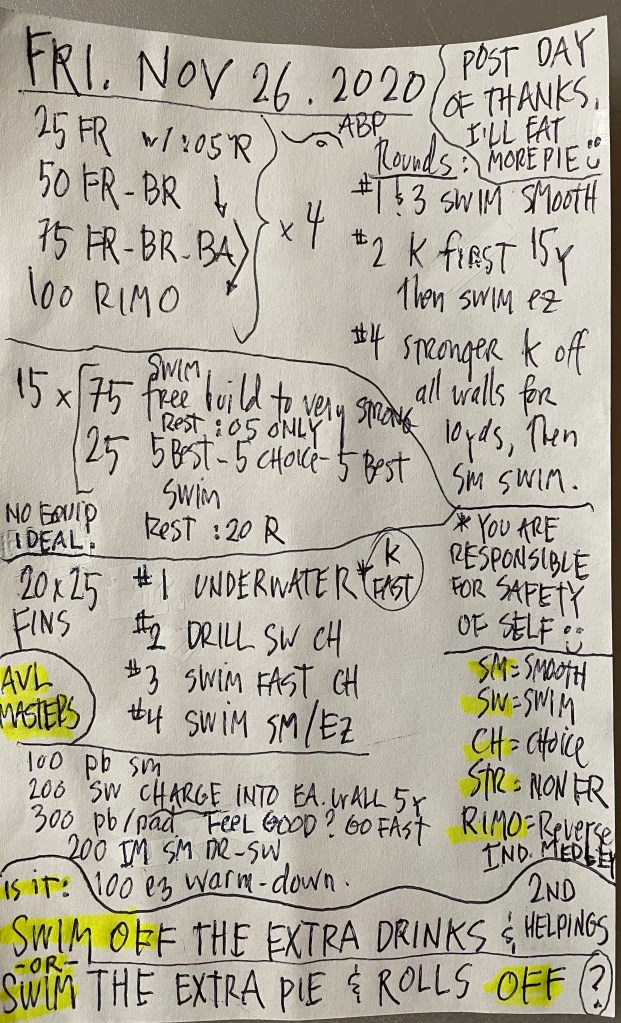 FRI. NOV 26. 2020
POST DAY
OF THANKS,
I'LL EAT
MORE PIE
25 FR w/ :05 R
50 FR-BR
75 FR-BR-BA
100 RIMO
x 4
ABP
Rounds:
#1 & 3 SWIM SMOOTH
#2 K first 15Y
Then swim ez
#4 stronger K off
all walls for
10yds, Then
SM SWIM.
15 x
75 SWIM
free build to very STRONG
REST :05 ONLY
25 5 BEST - 5 CHOICE - 5 BEST
SWIM
Rest :20 R
NO EQUIP
IDEAL.
* YOU ARE
RESPONSIBLE
FOR SAFETY
OF SELF
20 x 25
FINS
#1 UNDERWATER*
K
FAST
#2 DRILL SW CH
#3 SWIM FAST CH
#4 SWIM SM/EZ
AVL
MASTERS
SM = SMOOTH
SW = SWIM
CH = CHOICE
STR = NON FR
RIMO = Reverse
IND. MEDLEY
100 pb sm
200 SW CHARGE INTO EA. WALL 5Y
300 pb/pad FEEL GOOD? GO FAST
200 IM SM DR-SW
100 ez warm-down.
IS IT:
SWIM OFF THE EXTRA DRINKS & 2ND HELPINGS
-OR-
SWIM THE EXTRA PIE & ROLLS OFF ?